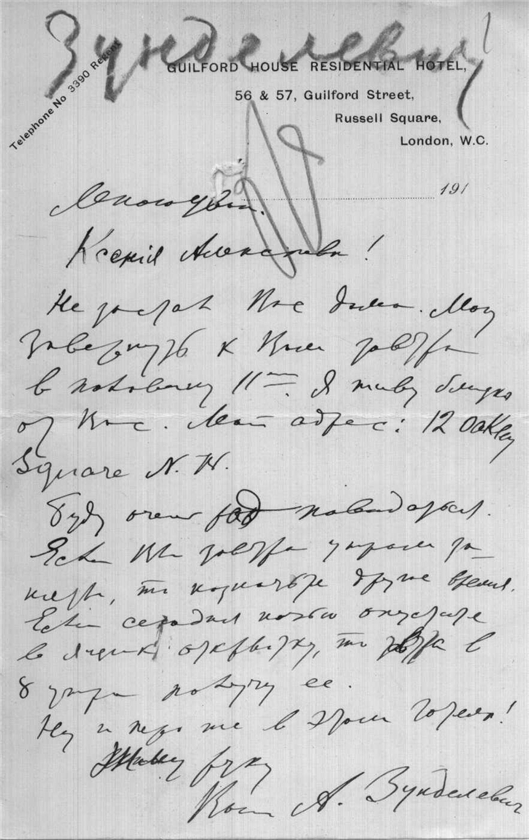 Зунделевич
Telephone No 3390 Regent
GUILFORD HOUSE RESIDENTIAL HOTEL,
56 & 57, Guilford Street,
Russell Square,
London, W.C.
191
Многоуваж.
Ксенiя Алексеевна!
Не застал Вас дома. Могу
завернуть к Вам завтра
в половину 11ого. Я живу близко
от Вас. Мой адрес: 12 Oakley
Square N. W.
Буду очень рад повидаться.
Если Вы завтра утром за-
няты, то назначьте другое время.
Если сегодня ночью опустите
в ящик открытку, то завтра в
8 утра получу ее.
Ну и жарко же в этом городе!
Жму руку
Ваш А. Зунделевич